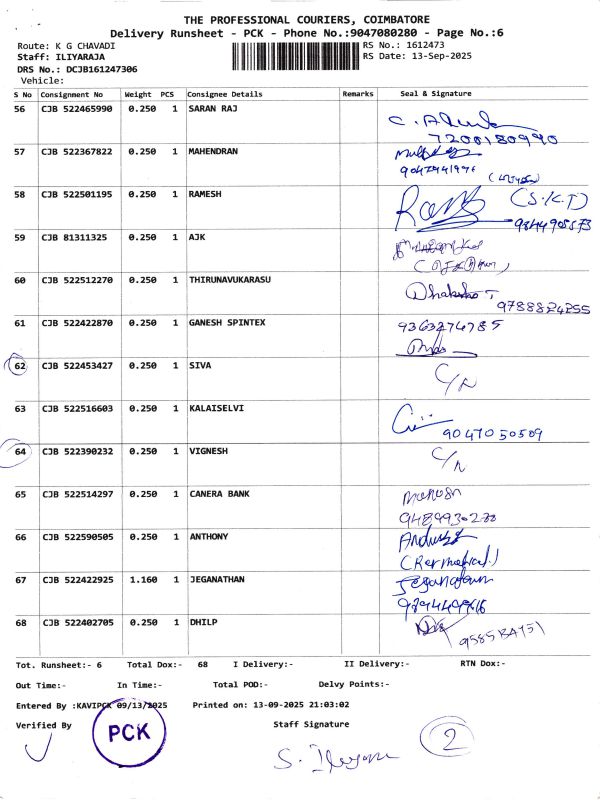 THE PROFESSIONAL COURIERS, COIMBATORE
Delivery Runsheet - PCK - Phone No.:9047080280 - Page No.:6
Route: K G CHAVADI RS No.: 1612473
Staff: ILIYARAJA RS Date: 13-Sep-2025
DRS No.: DCJB161247306
Vehicle:
S No Consignment No Weight PCS Consignee Details Remarks Seal & Signature
56 CJB 522465990 0.250 1 SARAN RAJ
7200180990
57 CJB 522367822 0.250 1 MAHENDRAN
58 CJB 522501195 0.250 1 RAMESH
(S.K.T)
59 CJB 81311325 0.250 1 AJK
60 CJB 522512270 0.250 1 THIRUNAVUKARASU
9788824255
61 CJB 522422870 0.250 1 GANESH SPINTEX 9363274785
62 CJB 522453427 0.250 1 SIVA C/N
63 CJB 522516603 0.250 1 KALAISELVI
9047050509
64 CJB 522390232 0.250 1 VIGNESH C/N
65 CJB 522514297 0.250 1 CANERA BANK
66 CJB 522590505 0.250 1 ANTHONY
67 CJB 522422925 1.160 1 JEGANATHAN Jeganathan
68 CJB 522402705 0.250 1 DHILP
Tot. Runsheet:- 6 Total Dox:- 68 I Delivery:- II Delivery:- RTN Dox:-
Out Time:- In Time:- Total POD:- Delvy Points:-
Entered By :KAVIPCK 09/13/2025 Printed on: 13-09-2025 21:03:02
Verified By Staff Signature
PCK
2